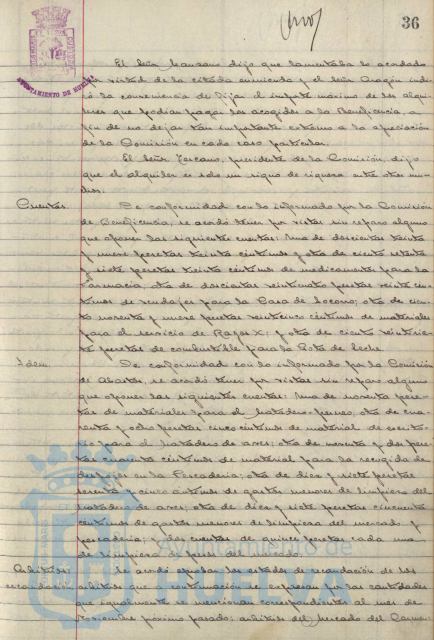 36
AYUNTAMIENTO DE HUELVA
El Señor Manzano dijo que lamentaba lo acordado
en virtud de la citada enmienda y el Señor Aragón indi-
có la conveniencia de fijar el importe máximo de los alqui-
leres que podían pagar los acogidos a la Beneficencia, a
fin de no dejar tan importante extremo a la apreciación
de la Comisión en cada caso particular.
El Señor Toscano, presidente de la Comisión, dijo
que el alquiler es solo un signo de riqueza entre otros mu-
chos.
Cuentas. De conformidad con lo informado por la Comisión
de Beneficencia, se acordó tener por vistas sin reparo alguno
que oponer las siguientes cuentas: Una de doscientas treinta
y nueve pesetas treinta céntimos y otra de ciento setenta
y siete pesetas treinta céntimos de medicamentos para la
Farmacia, otra de doscientas veinticuatro pesetas veinte cén-
timos de vendajes para la Casa de Socorro; otra de cien-
to noventa y nueve pesetas veinticinco céntimos de materiales
para el servicio de Rayos X; y otra de ciento veintisiete
pesetas de combustible para la Gota de leche.
Idem. De conformidad con lo informado por la Comisión
de Abastos, se acordó tener por vistas sin reparo alguno
que oponer las siguientes cuentas: Una de noventa pese-
tas de materiales para el matadero; otra de cua-
renta y ocho pesetas cinco céntimos de material de escrito-
rio para el matadero de aves; otra de noventa y dos pese-
tas cuarenta céntimos de material para la recogida de
despojos en la Pescadería; otra de diez y siete pesetas
setenta y cinco céntimos de gastos menores de limpieza del
matadero de aves; otra de diez y siete pesetas cincuenta
céntimos de gastos menores de limpieza del mercado y
pescadería; y dos cuentas de quince pesetas cada una
de limpieza de del mercado.
Arbitrios: recaudación Se acordó aprobar los estados de recaudación de los
arbitrios que a continuación se expresan por las cantidades
que igualmente se mencionan correspondientes al mes de
Noviembre próximo pasado: arbitrios del Mercado del Carmen
Ayuntamiento de
HUELVA